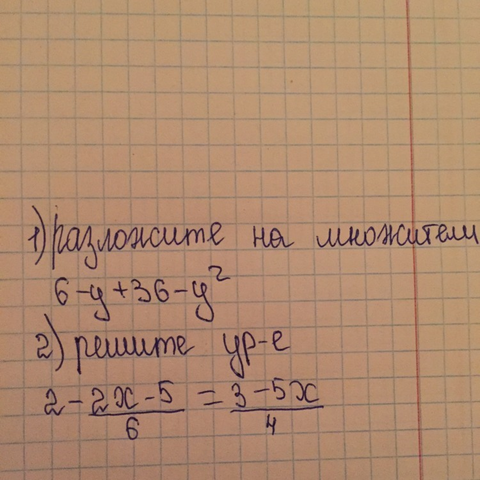 1) разложите на множители
6-y+36-y²
2) решите ур-е
2 - 2x-5/6 = 3-5x/4